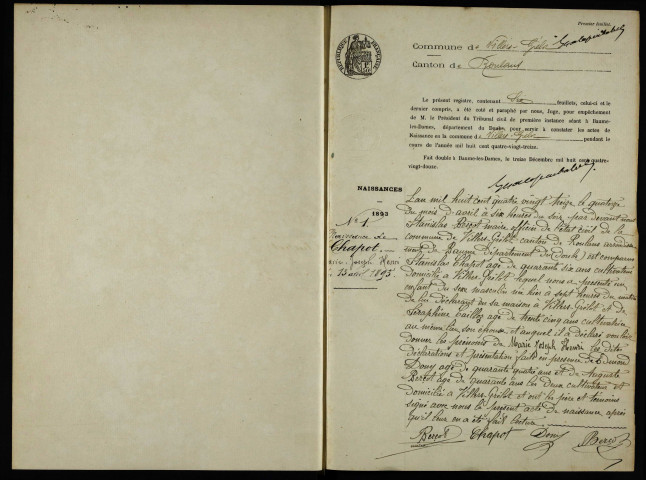 Premier feuillet.
Commune de Villers-Grélot
Canton de Roulans
RÉPUBLIQUE FRANÇAISE
Le présent registre, contenant feuillets, celui-ci et le
dernier compris, a été coté et paraphé par nous, Juge, pour empêchement
de M. le Président du Tribunal civil de première instance séant à Baume-
les-Dames, département du Doubs, pour servir à constater les actes de
Naissance en la commune de Villers-Grélot pendant le
cours de l'année mil huit cent quatre-vingt-treize.
Fait double à Baume-les-Dames, le treize Décembre mil huit cent quatre-
vingt-douze.
NAISSANCES
1893
N° 1.
Naissance de
Chapot
Marie Joseph Henri
13 avril 1893.
L'an mil huit cent quatre vingt treize le quatorze
du mois d'avril à six heures du soir par devant nous
Stanislas Berçot maire officier de l'état civil de la
commune de Villers-Grélot canton de Roulans arrondisse-
ment de Baume Département du (Doubs) est comparu
Stanislas Chapot agé de quarante six ans cultivateur
domicilié à Villers-Grélot lequel nous a présenté un
enfant du sexe masculin né hier à sept heures du matin
de lui déclarant en sa maison à Villers-Grélot et de
Séraphine agée de trente cinq ans cultivatrice
au même lieu son épouse et auquel il a déclaré vouloir
donner les prénoms de Marie Joseph Henri les dites
déclarations et présentation faites en présence de
Dony agé de quarante quatre ans et de Auguste
Berçot agé de quarante ans les deux cultivateurs et
domiciliés à Villers-Grélot et ont les père et témoins
signé avec nous le présent acte de naissance après
qu'il leur en a été fait lecture
Berçot Chapot Dony Berçot